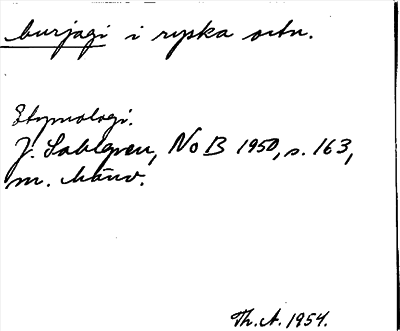 burjagi i ryska ortn.
Etymologi.
J. Sahlgren, NoB 1950, s. 163,
m. hänv.
Th. A. 1954.